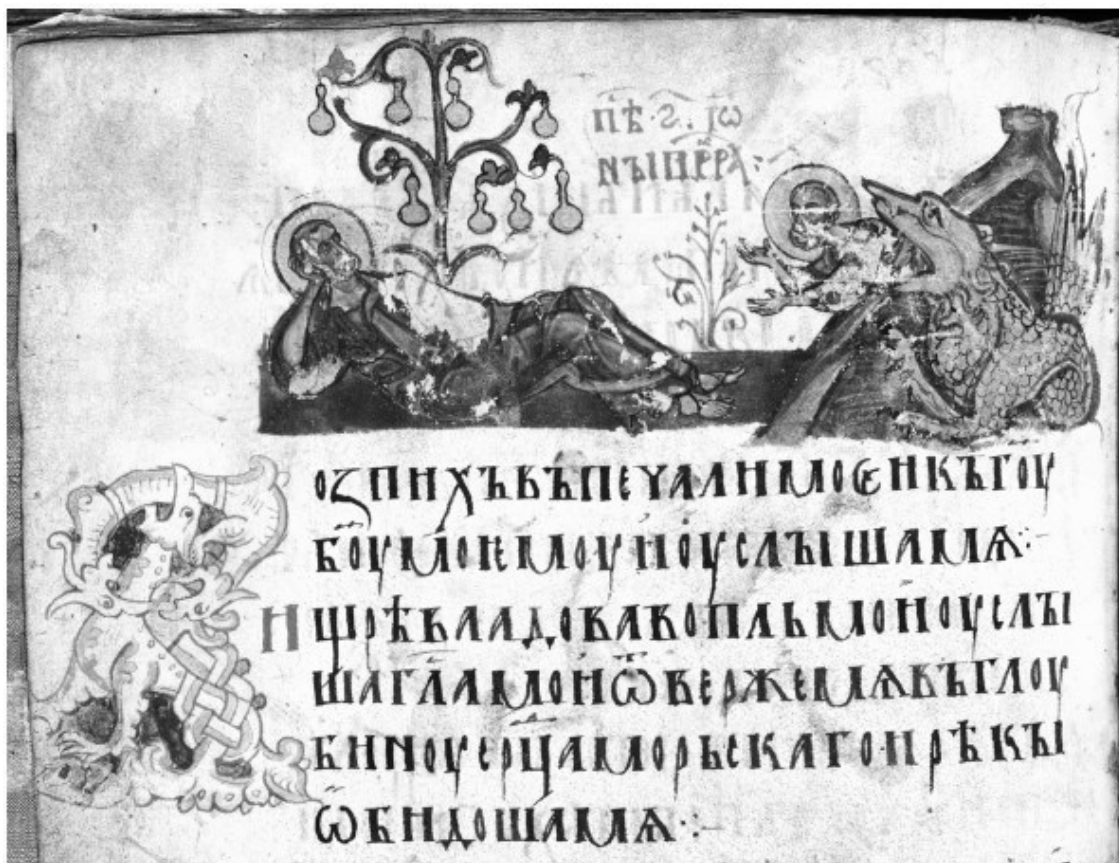 пѣ·ѕ·їѡ
ныпррка:
Возпихъвъпечалимоѥикъгоу
боумоѥмоуиоуслъıшамѧ:·
ищрѣваадовавопльмоиоуслъı
шагламоиѿвержемѧвъглоу
биноусерцаморьскагоирѣкъı
ѡбидошамѧ:·